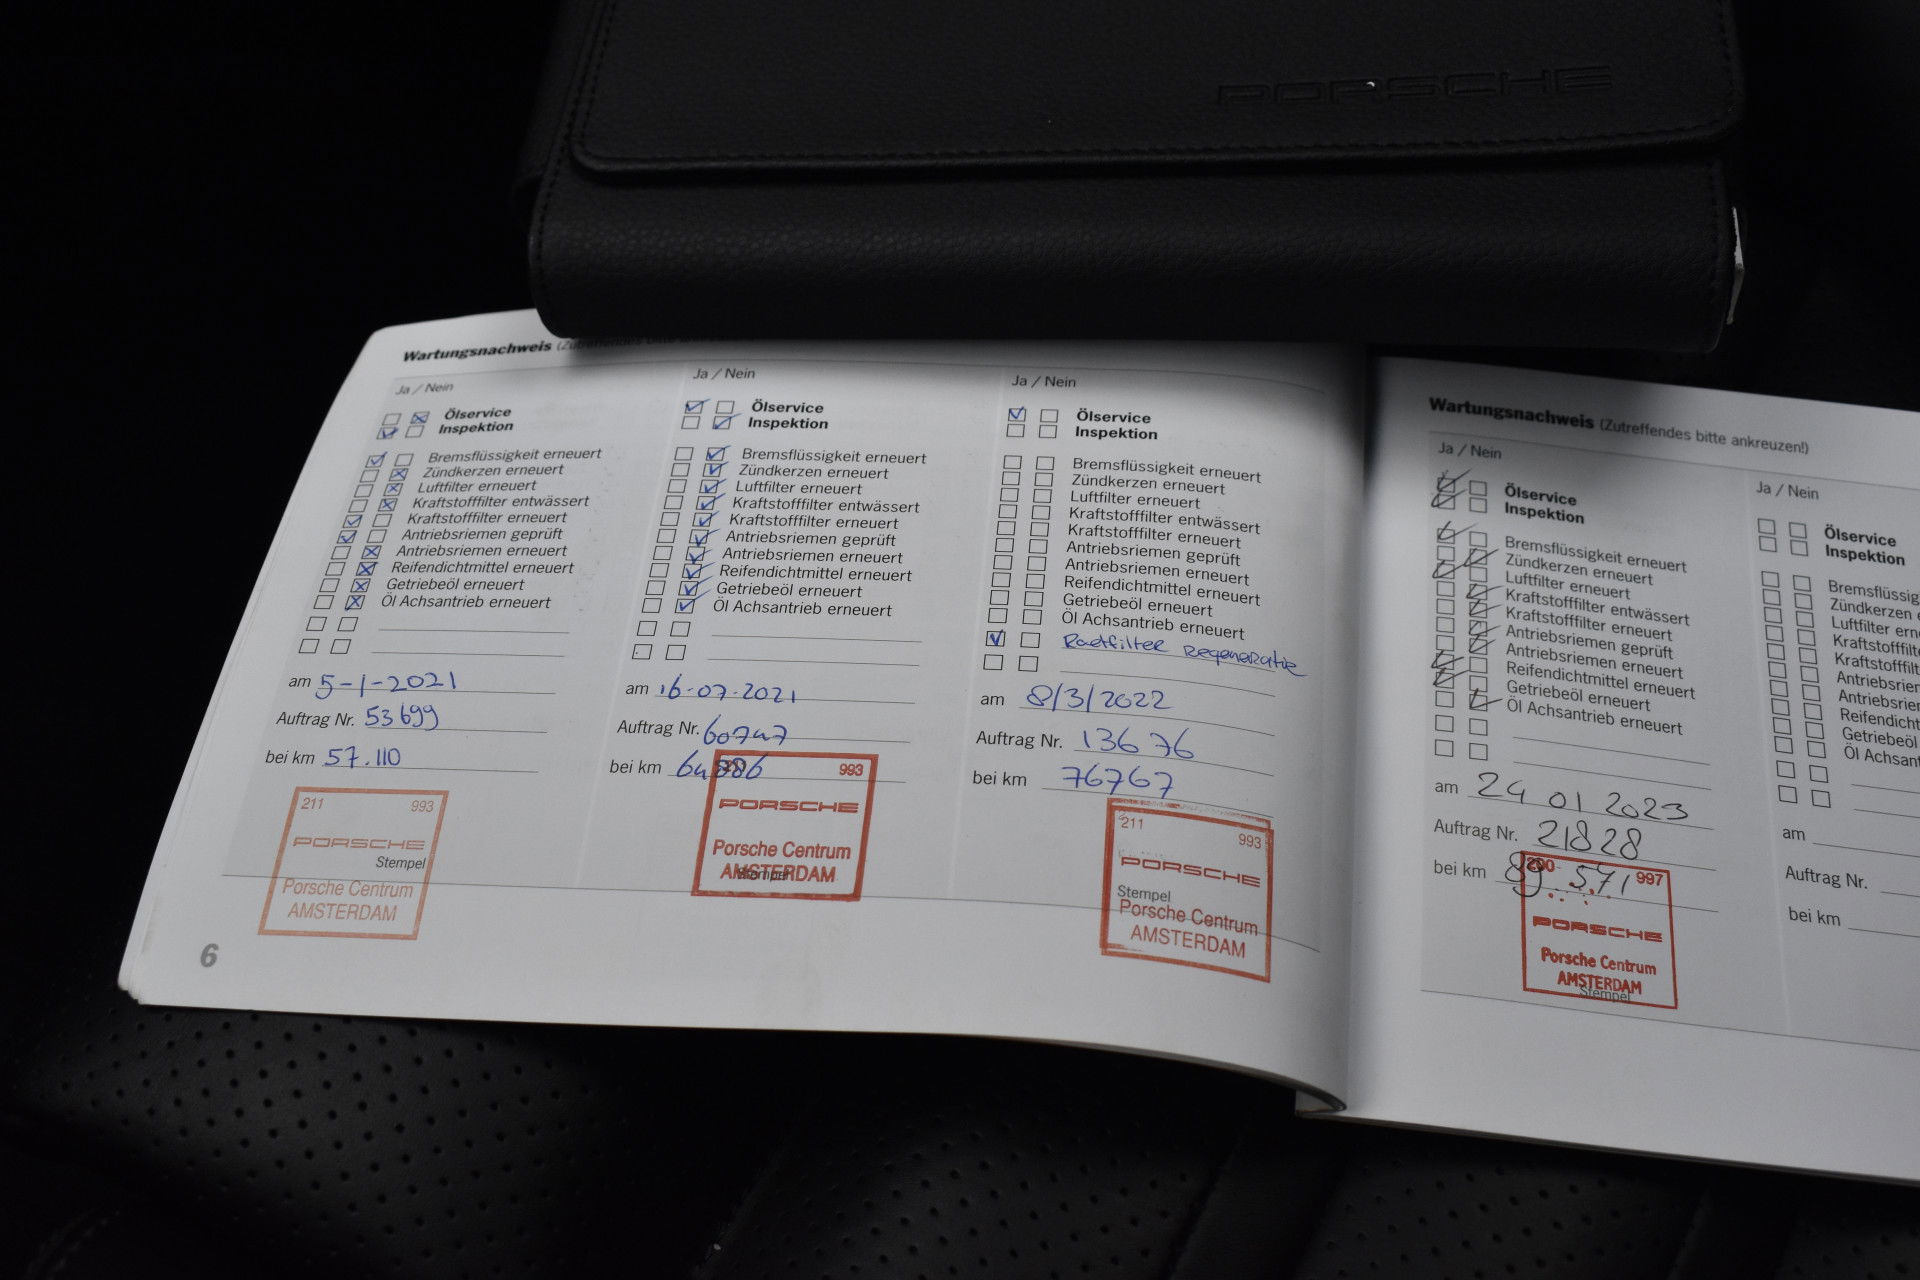 PORSCHE
Wartungsnachweis
Ja / Nein
Ölservice
Inspektion
Bremsflüssigkeit erneuert
Zündkerzen erneuert
Luftfilter erneuert
Kraftstofffilter entwässert
Kraftstofffilter erneuert
Antriebsriemen geprüft
Antriebsriemen erneuert
Reifendichtmittel erneuert
Getriebeöl erneuert
Öl Achsantrieb erneuert
am 5-1-2021
Auftrag Nr. 53699
bei km 57.110
211 993
PORSCHE
Stempel
Porsche Centrum
AMSTERDAM
6
Ja / Nein
Ölservice
Inspektion
Bremsflüssigkeit erneuert
Zündkerzen erneuert
Luftfilter erneuert
Kraftstofffilter entwässert
Kraftstofffilter erneuert
Antriebsriemen geprüft
Antriebsriemen erneuert
Reifendichtmittel erneuert
Getriebeöl erneuert
Öl Achsantrieb erneuert
am 16-07-2021
Auftrag Nr. 60747
bei km
993
PORSCHE
Porsche Centrum
AMSTERDAM
Stempel
Ja / Nein
Ölservice
Inspektion
Bremsflüssigkeit erneuert
Zündkerzen erneuert
Luftfilter erneuert
Kraftstofffilter entwässert
Kraftstofffilter erneuert
Antriebsriemen geprüft
Antriebsriemen erneuert
Reifendichtmittel erneuert
Getriebeöl erneuert
Öl Achsantrieb erneuert
am 8/3/2022
Auftrag Nr. 13676
bei km 76767
211 993
PORSCHE
Stempel
Porsche Centrum
AMSTERDAM
Wartungsnachweis (Zutreffendes bitte ankreuzen!)
Ja / Nein
Ölservice
Inspektion
Bremsflüssigkeit erneuert
Zündkerzen erneuert
Luftfilter erneuert
Kraftstofffilter entwässert
Kraftstofffilter erneuert
Antriebsriemen geprüft
Antriebsriemen erneuert
Reifendichtmittel erneuert
Getriebeöl erneuert
Öl Achsantrieb erneuert
am 24 01 2023
Auftrag Nr. 21828
bei km 89.571
200 997
PORSCHE
Porsche Centrum
AMSTERDAM
Stempel
Ja / Nein
Ölservice
Inspektion
Bremsflüssig
Zündkerzen
Luftfilter ern
Kraftstofffilt
Kraftstofffilt
Antriebsrieme
Antriebsrie
Reifendicht
Getriebeöl
Öl Achsant
am
Auftrag Nr.
bei km